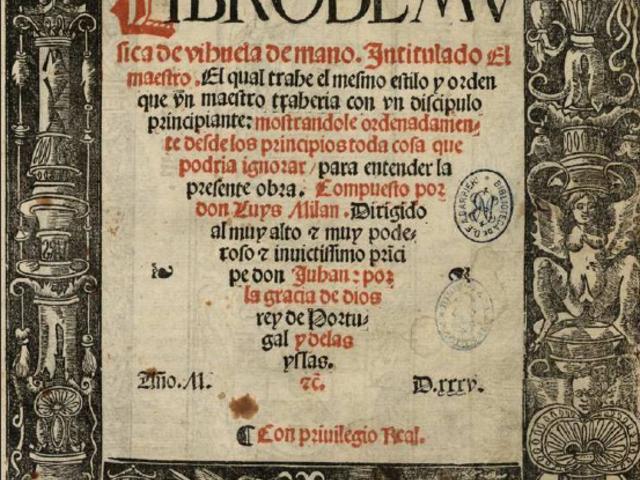 LIBRO DE MV
sica de vihuela de mano. Intitulado El
maestro. El qual trahe el mesmo estilo y orden
que vn maestro traheria con vn discipulo
principiante: mostrandole ordenadamen-
te desde los principios toda cosa que
podria ignorar / para entender la
presente obra. Compuesto por
don Luys Milan. Dirigido
al muy alto ⁊ muy pode-
roso ⁊ inuictissimo princi
pe don Juhan: por
la gracia de dios
rey de Portu-
gal y delas
yslas.
Año. M. ⁊c. D.xxxv.
Con priuilegio Real.